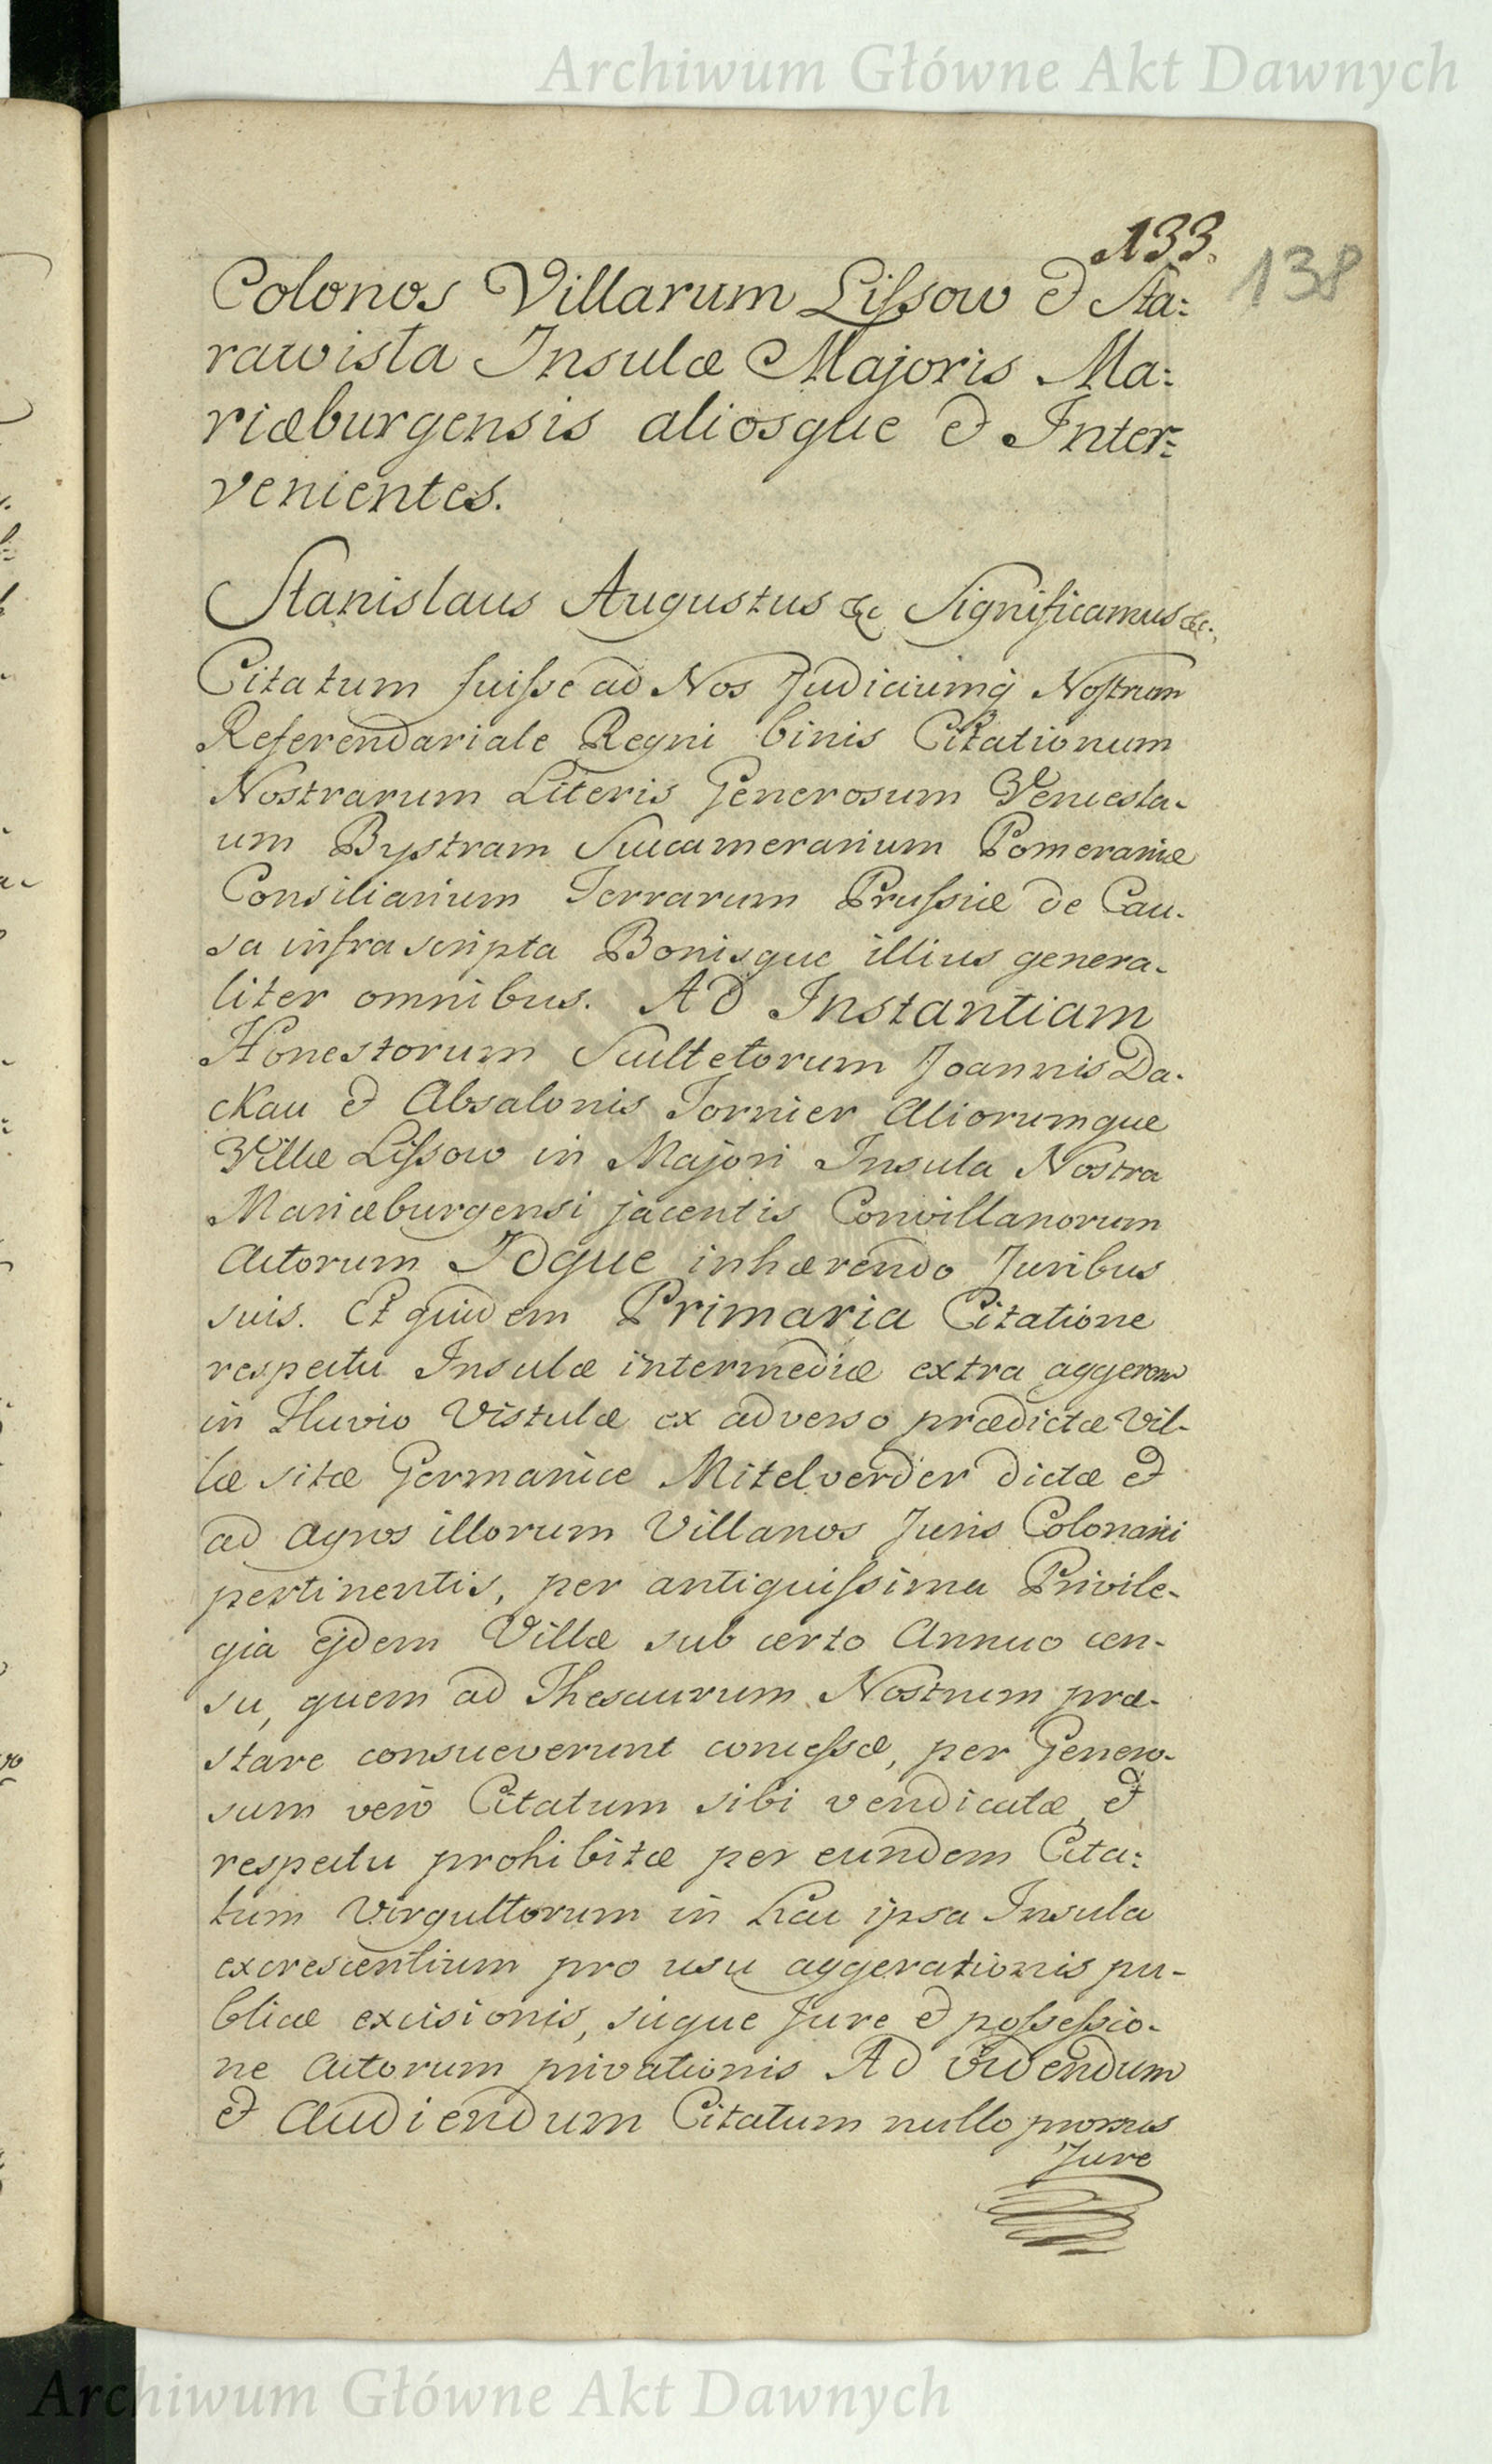 Archiwum Główne Akt Dawnych
133.
138
Colonos Villarum Lissow & Sta:
rawista Insulæ Majoris Ma:
riæburgensis aliosque & Inter:
venientes.
Stanislaus Augustus &c Significamus &c:
Citatum fuisse ad Nos Judiciumq Nostrum
Referendariale Regni binis Citationum
Nostrarum Literis Generosum Vencesla-
um Bystram Succamerarium Pomeraniæ
Consiliarium Terrarum Prussiæ de Cau-
sa infrascripta Bonisque illius genera-
liter omnibus. Ad Instantiam
Honestorum Scultetorum Joannis Da-
ckau & Absalonis Tornier Aliorumque
Villæ Lissow in Majori Insula Nostra
Mariæburgensi jacentis Convillanorum
Actorum Idque inhærendo Juribus
suis. Et quidem Primaria Citatione
respectu Insulæ intermediæ extra aggerem
in Fluvio Vistulæ ex adverso prædictæ Vil-
læ sitæ Germanice Mitelverder dictæ &
ad Agros illorum Villanos Juris Colonarii
pertinentis, per antiquissima Privile-
gia ejdem Villæ sub certo Annuo cen-
su, quem ad Thesaurum Nostrum præ-
stare consueverunt concessæ, per Genero-
sum vero Citatum sibi vendicatæ, &
respectu prohibitæ per eundem Cita:
tum Virgultorum in hac ipsa Insula
excrescentium pro usu aggerationis pu-
blicæ excisionis, sicque Jure & possessio-
ne Actorum privationis Ad Videndum
& Audiendum Citatum nullo prorsus
Jure
Archiwum Główne Akt Dawnych